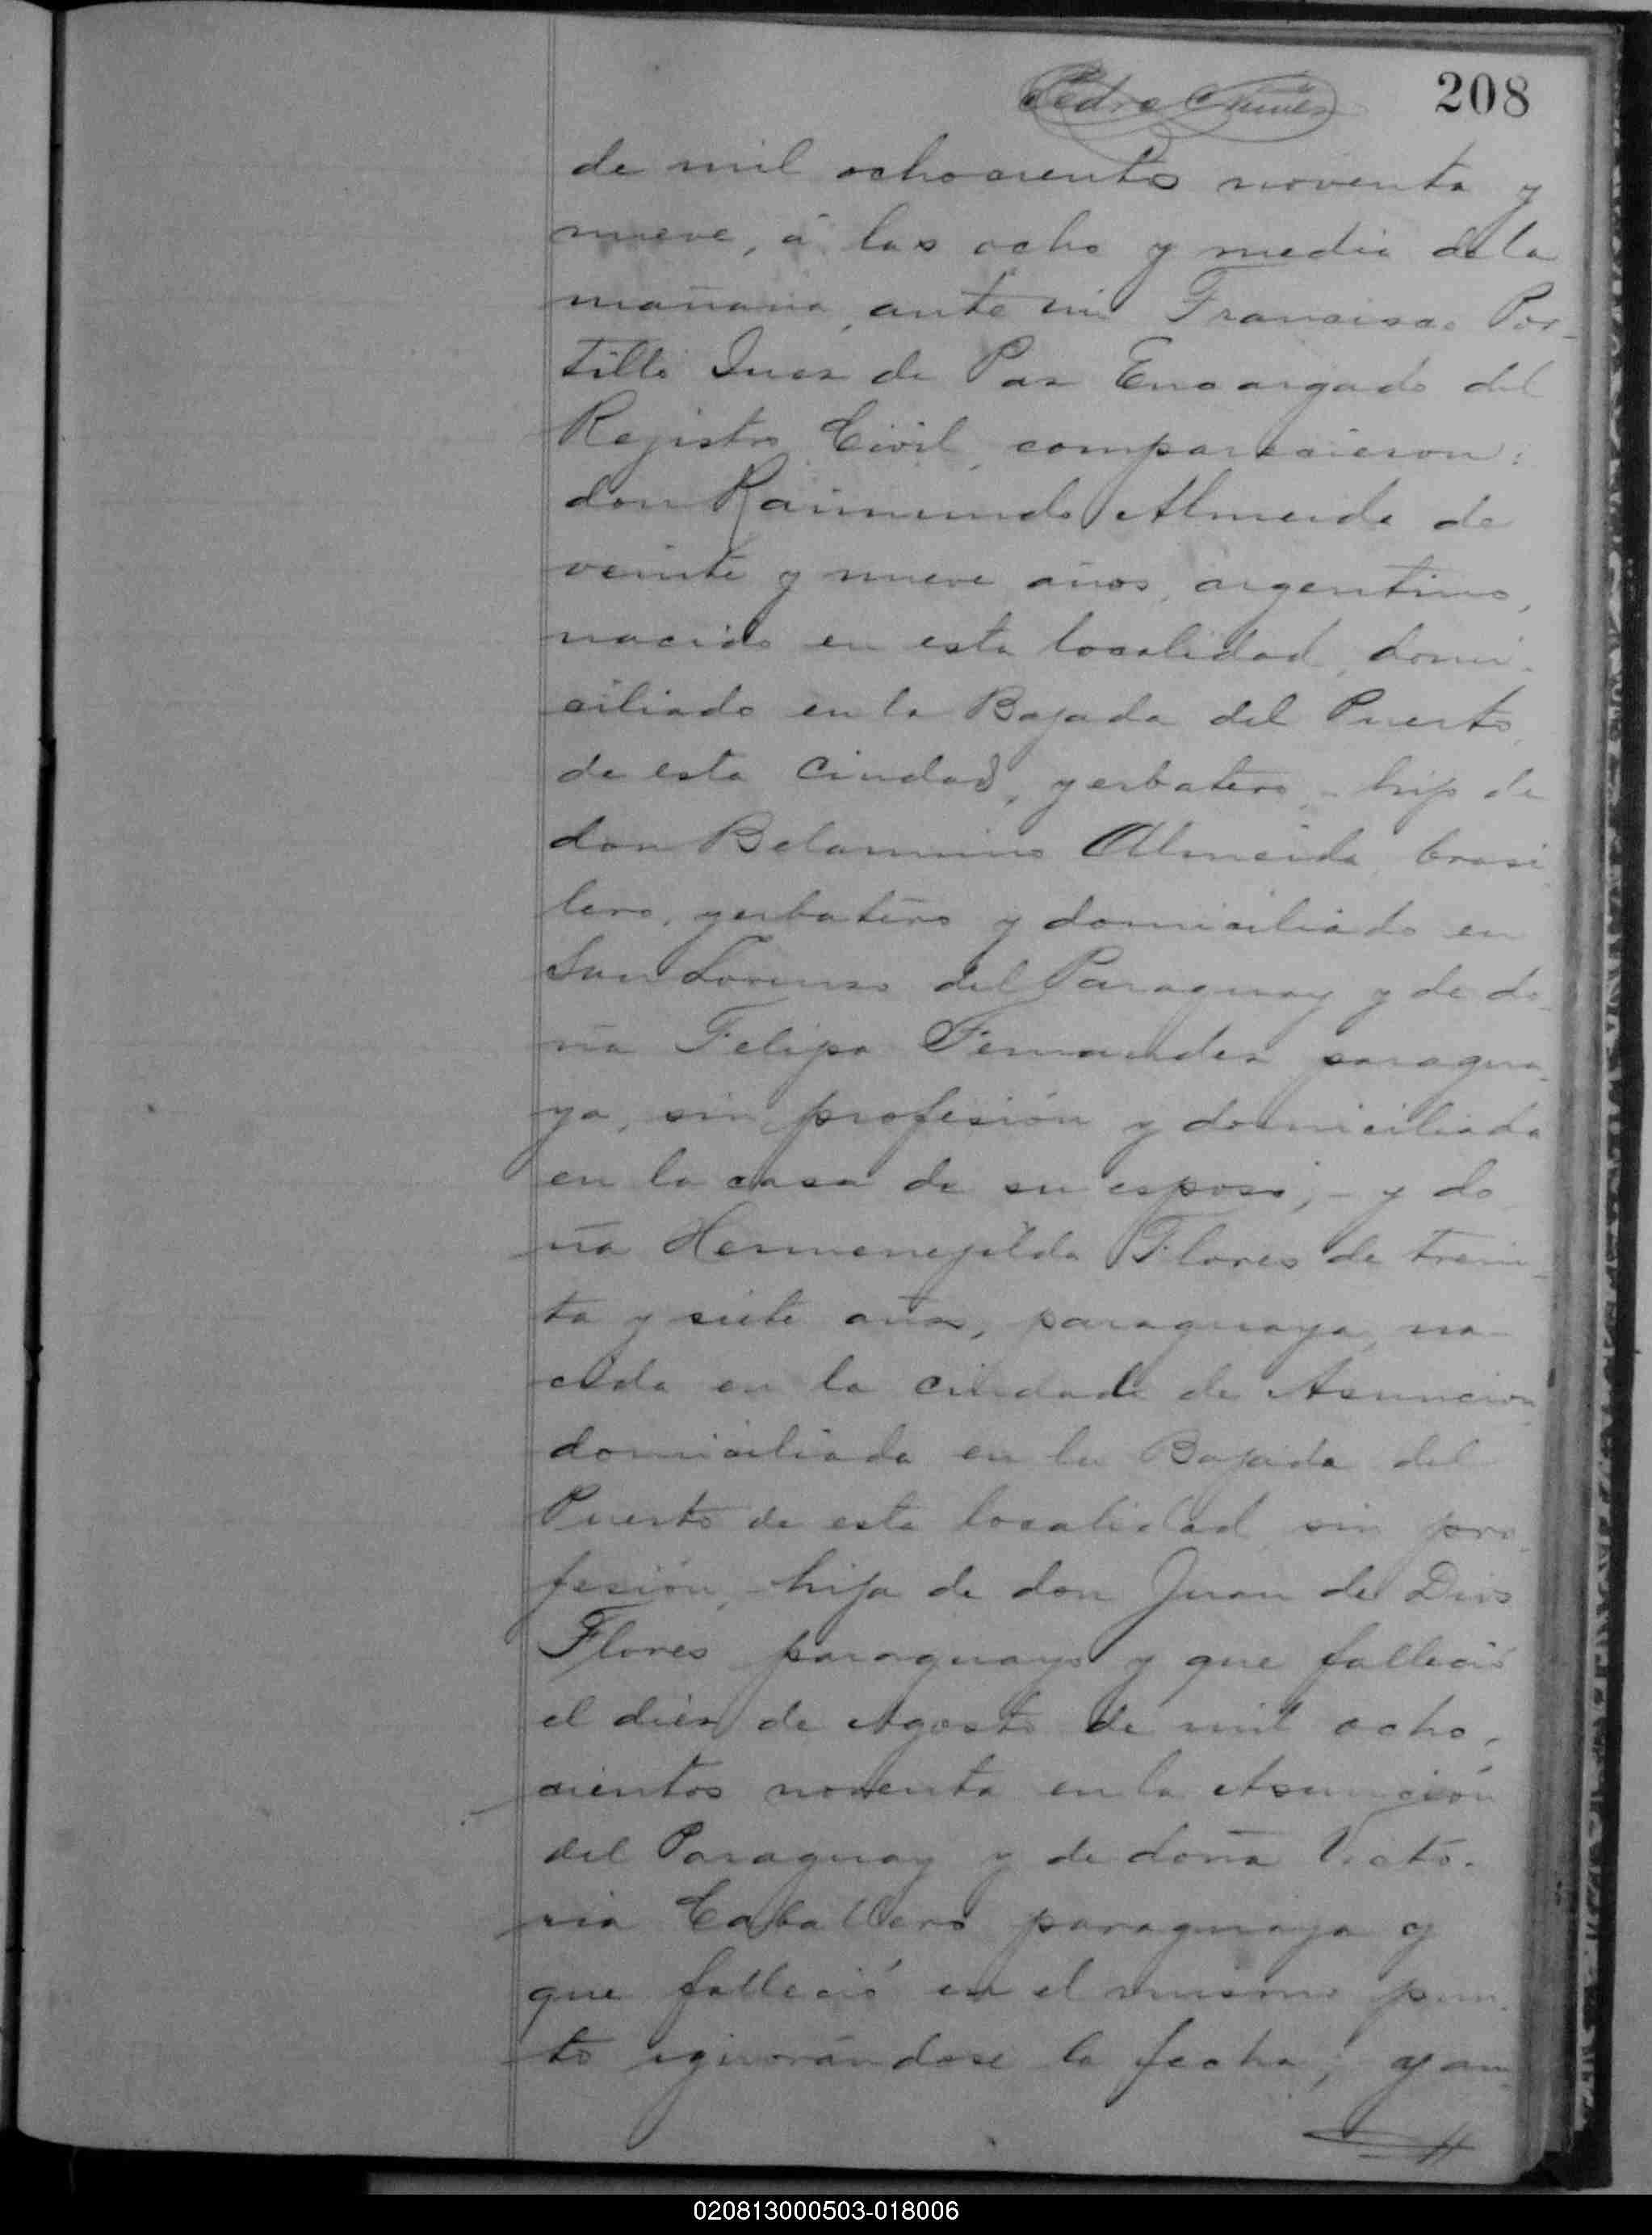 208
Pedro Nuñez
de mil ochocientos noventa y
nueve, á las ocho y media de la
mañana, ante mi Francisco Por-
tillo Juez de Paz Encargado del
Rejistro Civil, comparecieron:
don Raimundo Almeida de
veinte y nueve años, argentino,
nacido en esta localidad, domi-
ciliado en la Bajada del Puerto
de esta Ciudad, yerbatero, - hijo de
don Belarmino Almeida, brasi
lero, yerbatero y domiciliado en
San Lorenzo del Paraguay y de do
ña Felipa Fernandez paragua-
ya, sin profesión y domiciliada
en la casa de su esposo; - y do
ña Hermenejilda Flores de trein-
ta y siete años, paraguaya, na-
cida en la ciudad de Asuncion,
domiciliada en la Bajada del
Puerto de esta localidad sin pro-
fesión, - hija de don Juan de Dios
Flores paraguayo y que falleció
el diez de Agosto de mil ocho-
cientos noventa en la Asunción
del Paraguay y de doña Victo-
ria Caballero paraguaya y
que falleció en el mismo pun-
to ignorándose la fecha; y am-
020813000503-018006